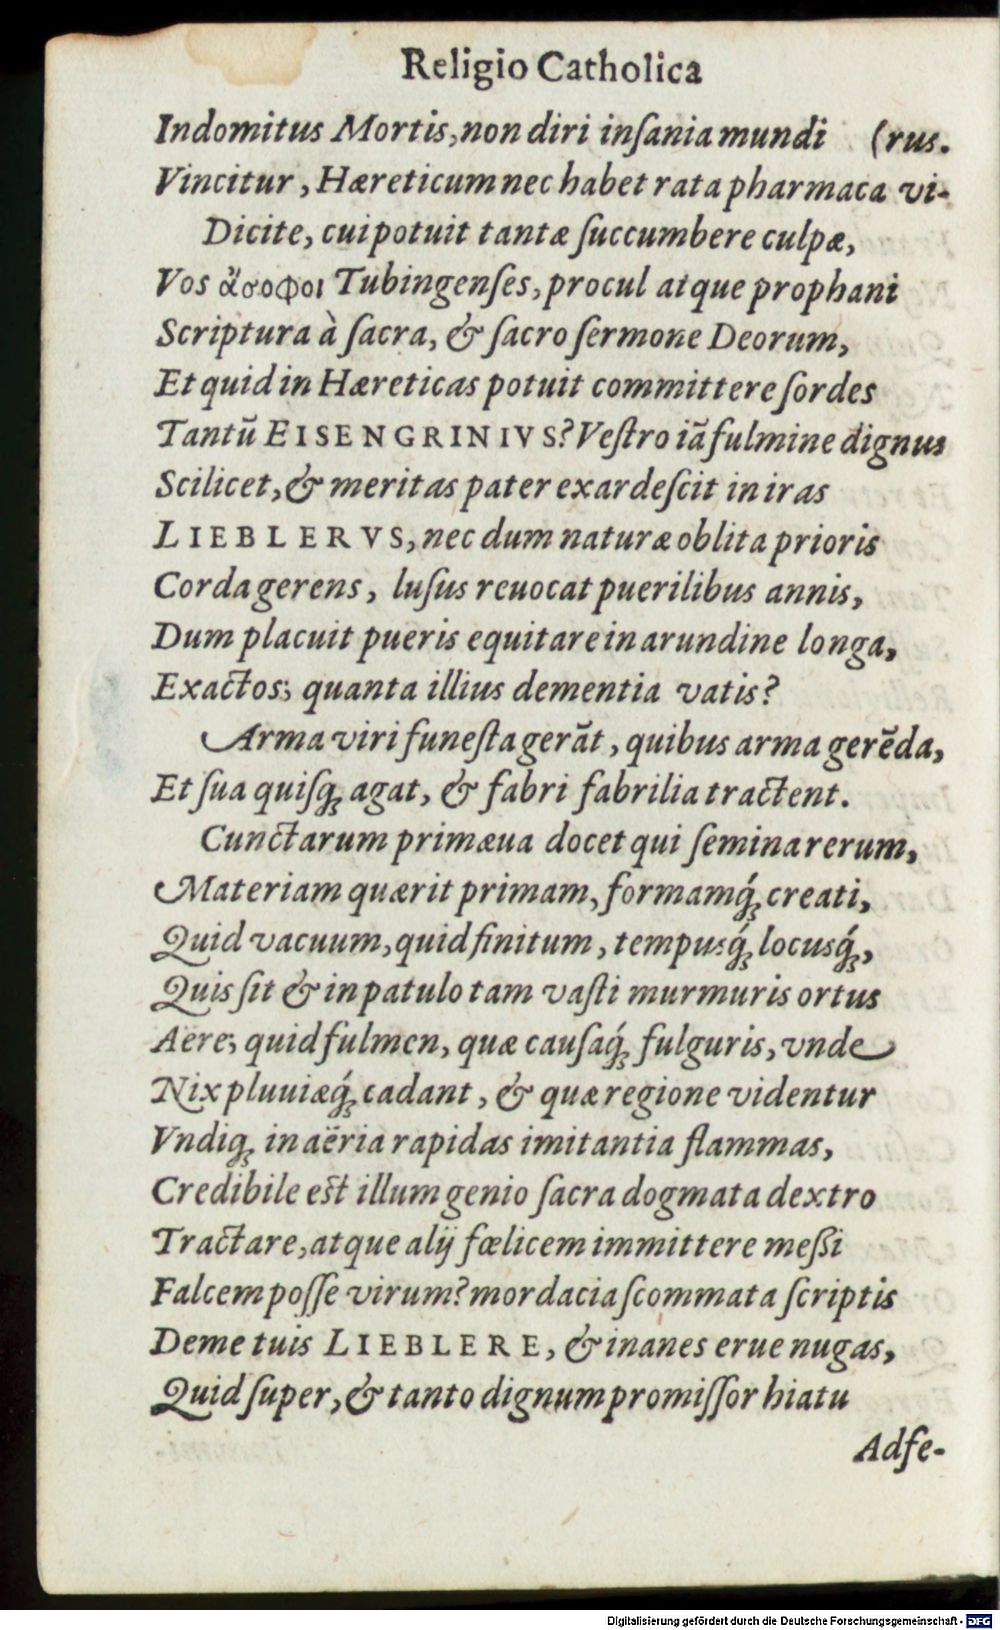 Religio Catholica
Indomitus Mortis, non diri inſania mundi (rus.
Vincitur, Hæreticum nec habet rata pharmaca vi-
Dicite, cui potuit tantæ ſuccumbere culpæ,
Vos ἄσοφοι Tubingenſes, procul atque prophani
Scriptura à ſacra, & ſacro ſermone Deorum,
Et quid in Hæreticas potuit committere ſordes
Tantũ EISENGRINIVS? Veſtro iã fulmine dignus
Scilicet, & meritas pater exardeſcit in iras
LIEBLERVS, nec dum naturæ oblita prioris
Corda gerens, luſus reuocat puerilibus annis,
Dum placuit pueris equitare in arundine longa,
Exactos; quanta illius dementia vatis?
Arma viri funeſta gerãt, quibus arma gerẽda,
Et ſua quiſq; agat, & fabri fabrilia tractent.
Cunctarum primæua docet qui ſemina rerum,
Materiam quærit primam, formamq́; creati,
Quid vacuum, quid finitum, tempusq́; locusq́;,
Quis ſit & in patulo tam vaſti murmuris ortus
Aere; quid fulmen, quæ cauſaq́; fulguris, vnde
Nix pluuiæq́; cadant, & quæ regione videntur
Vndiq; in aëria rapidas imitantia flammas,
Credibile est illum genio ſacra dogmata dextro
Tractare, atque alij fœlicem immittere meßi
Falcem poſſe virum? mordacia ſcommata ſcriptis
Deme tuis LIEBLERE, & inanes erue nugas,
Quid ſuper, & tanto dignum promiſſor hiatu
Adfe-
Digitalisierung gefördert durch die Deutsche Forschungsgemeinschaft - DFG